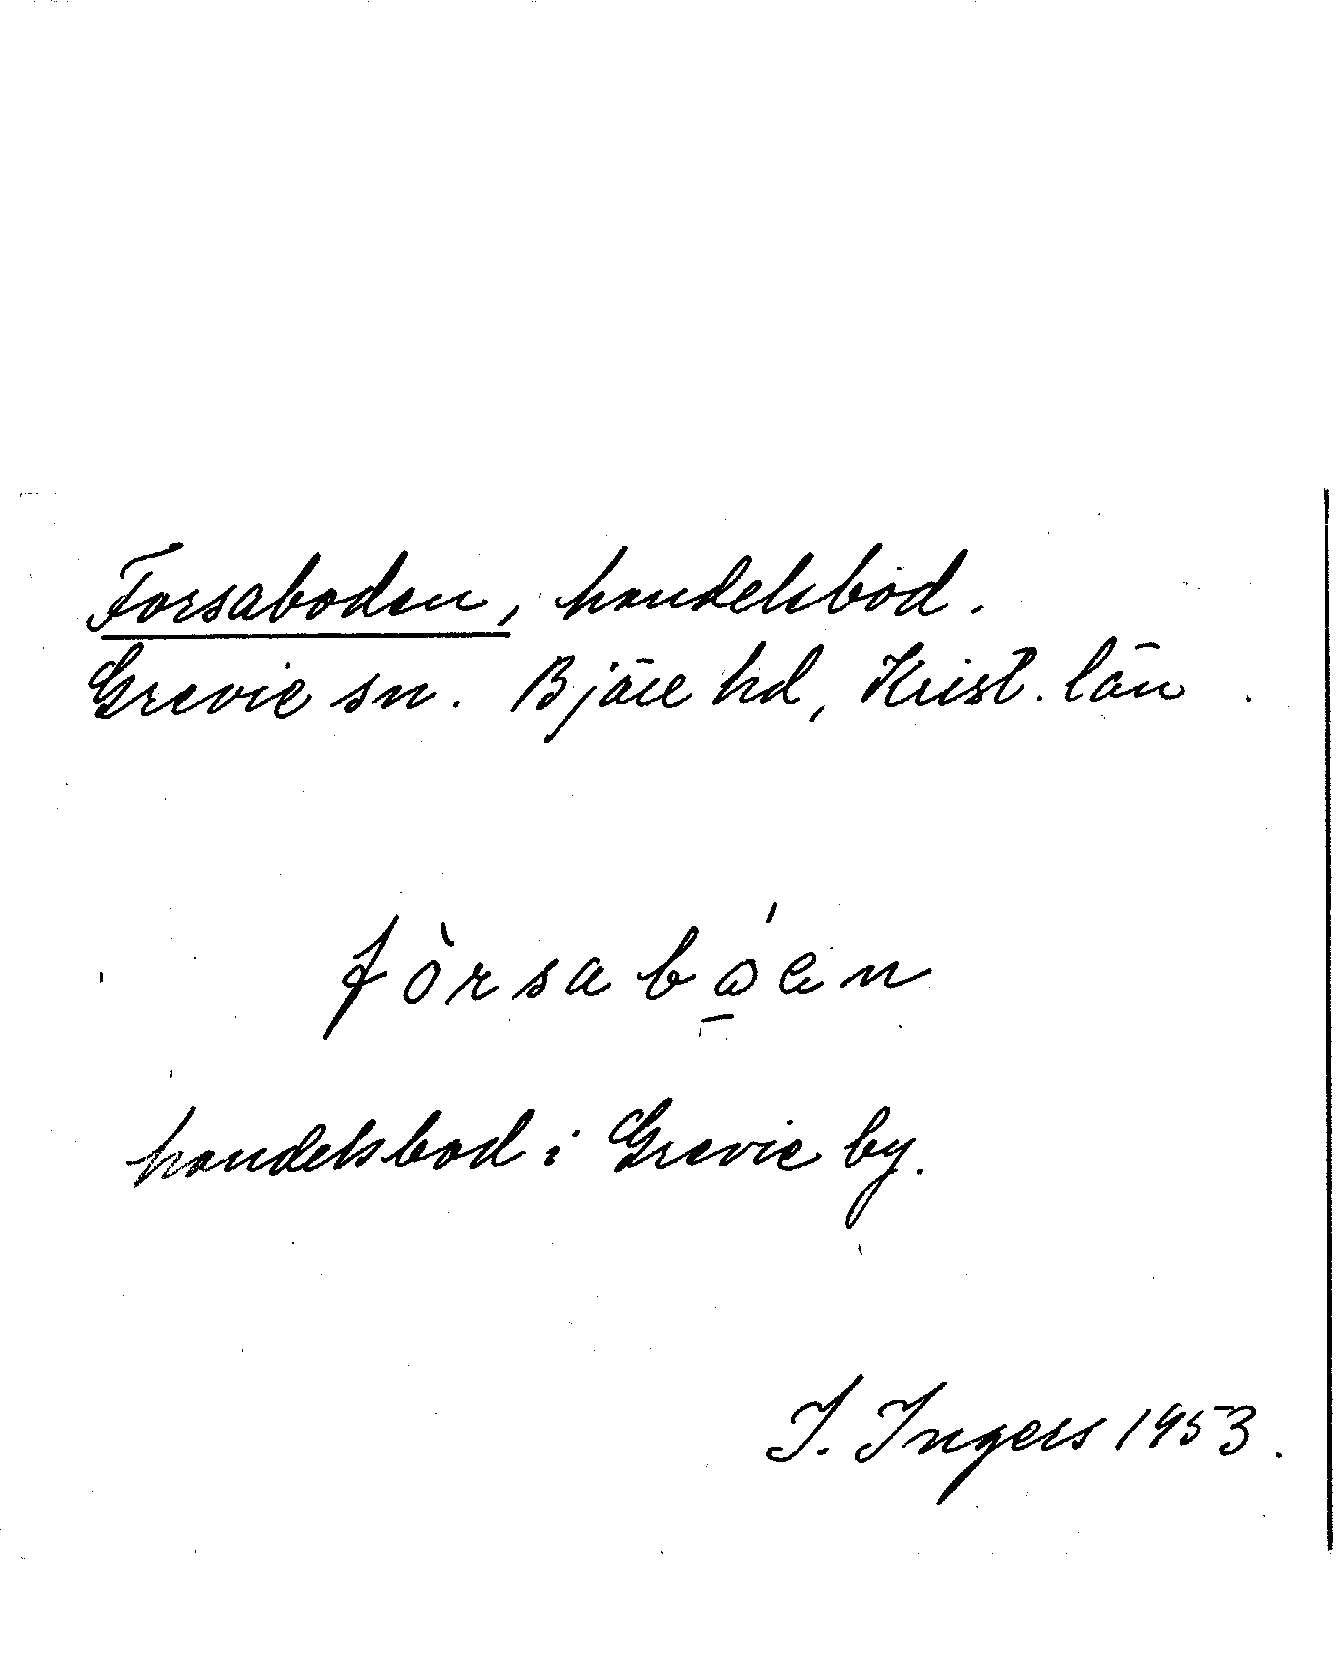 Forsaboden, handelsbod.
Grevie sn. Bjäre hd, Krist. län
fòrsabo̱´en
handelsbod i Grevie by.
I. Ingers 1953.